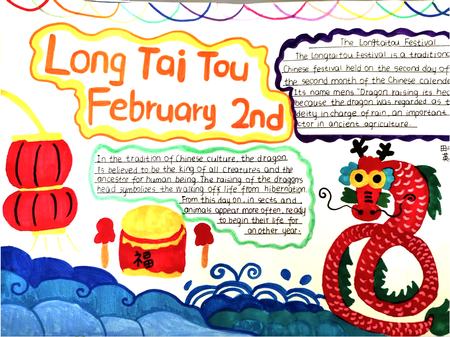 Long Tai Tou
February 2nd
The Longtaitou Festival
The Longtaitou Festival is a traditional
Chinese festival held on the second day of
the second month of the Chinese calende
Its name mens "Dragon raising its hea
because the dragon was regarded as t
deity in charge of rain, an important
ctor in ancient agriculture.
In the tradition of Chinese culture, the dragon
Is believed to be the king of all Creatures and the
ancestor for human being. The raising of the dragons
head symbolizes the walling off life from hibernation.
From this day on, in sects and
animals appear more often, ready
to begin their life for
another year.
福